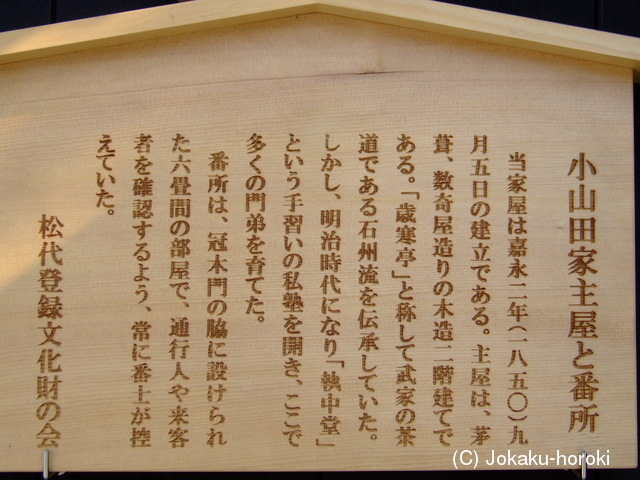 小山田家主屋と番所
当家屋は嘉永二年(一八五〇)九
月五日の建立である。主屋は、茅
葺、数奇屋造りの木造二階建てで
ある。「歳寒亭」と称して武家の茶
道である石州流を伝承していた。
しかし、明治時代になり「執中堂」
という手習いの私塾を開き、ここで
多くの門弟を育てた。
番所は、冠木門の脇に設けられ
た六畳間の部屋で、通行人や来客
者を確認するよう、常に番士が控
えていた。
松代登録文化財の会
(C) Jokaku-horoki